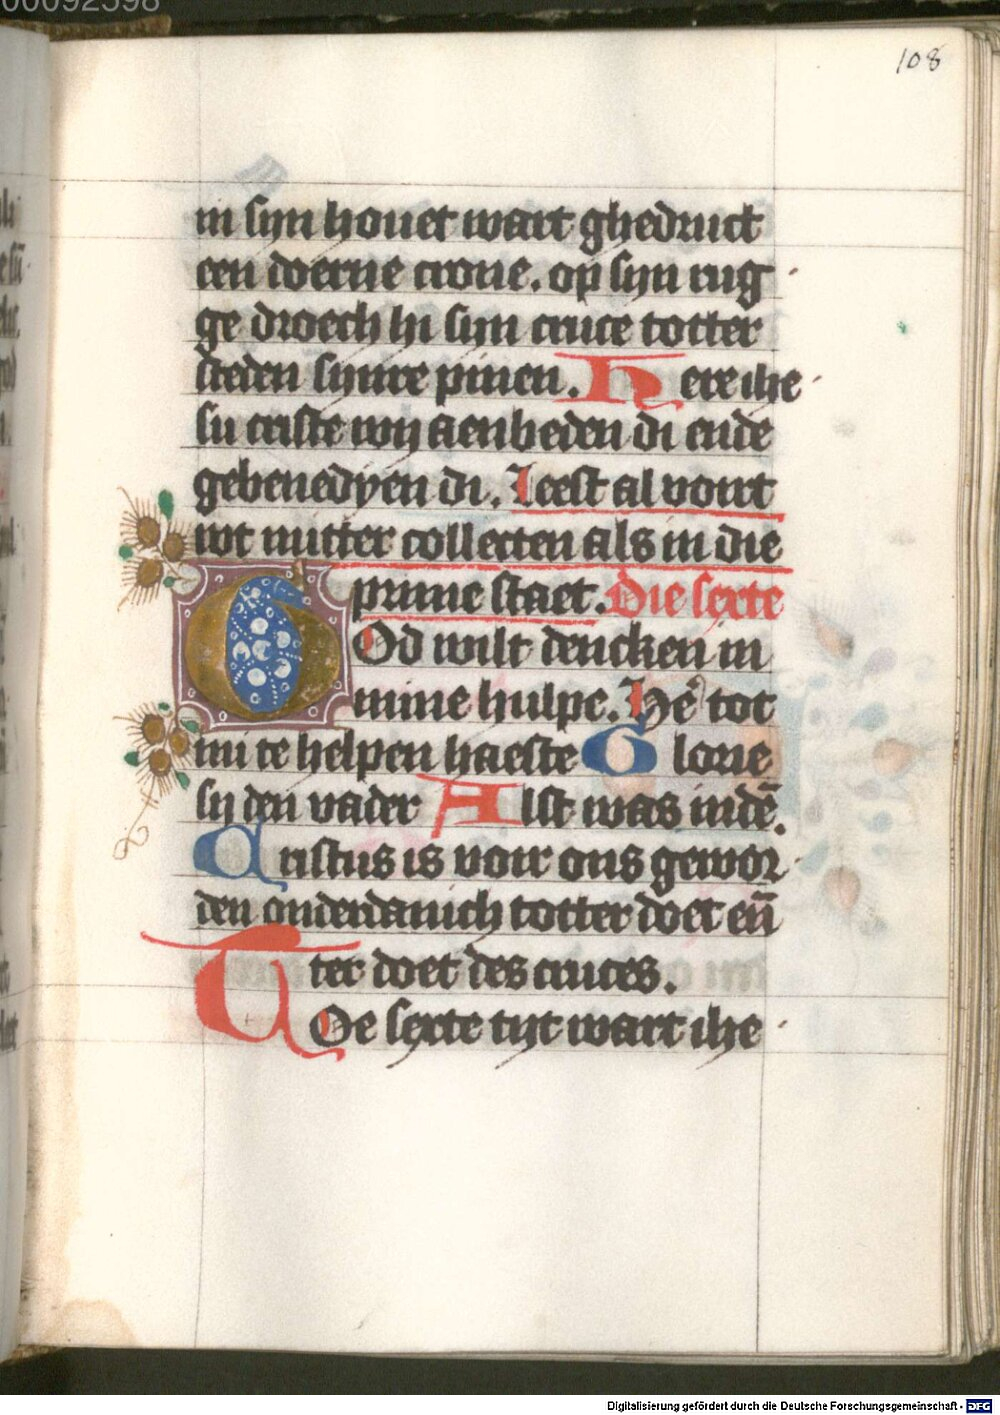 00092598
108
in syn houet wart ghedruct
een doerne crone. op syn rug
ge droech hi syn cruce totter
steden synre pinen. Here ihe
su criste wy aenbeden di ende
gebenedyen di. Leest al voirt
wt mitter collecten als in die
prime staet. Die sexte
GOd wilt dencken in
mine hulpe. Hē tot
mi te helpen haeste Glorie
sy den vader Alst was indē.
Cristus is voir ons gewor
den onderdanich totter doet en̄
ter doet des cruces.
TOe sexte tyt wart ihe
Digitalisierung gefördert durch die Deutsche Forschungsgemeinschaft - DFG